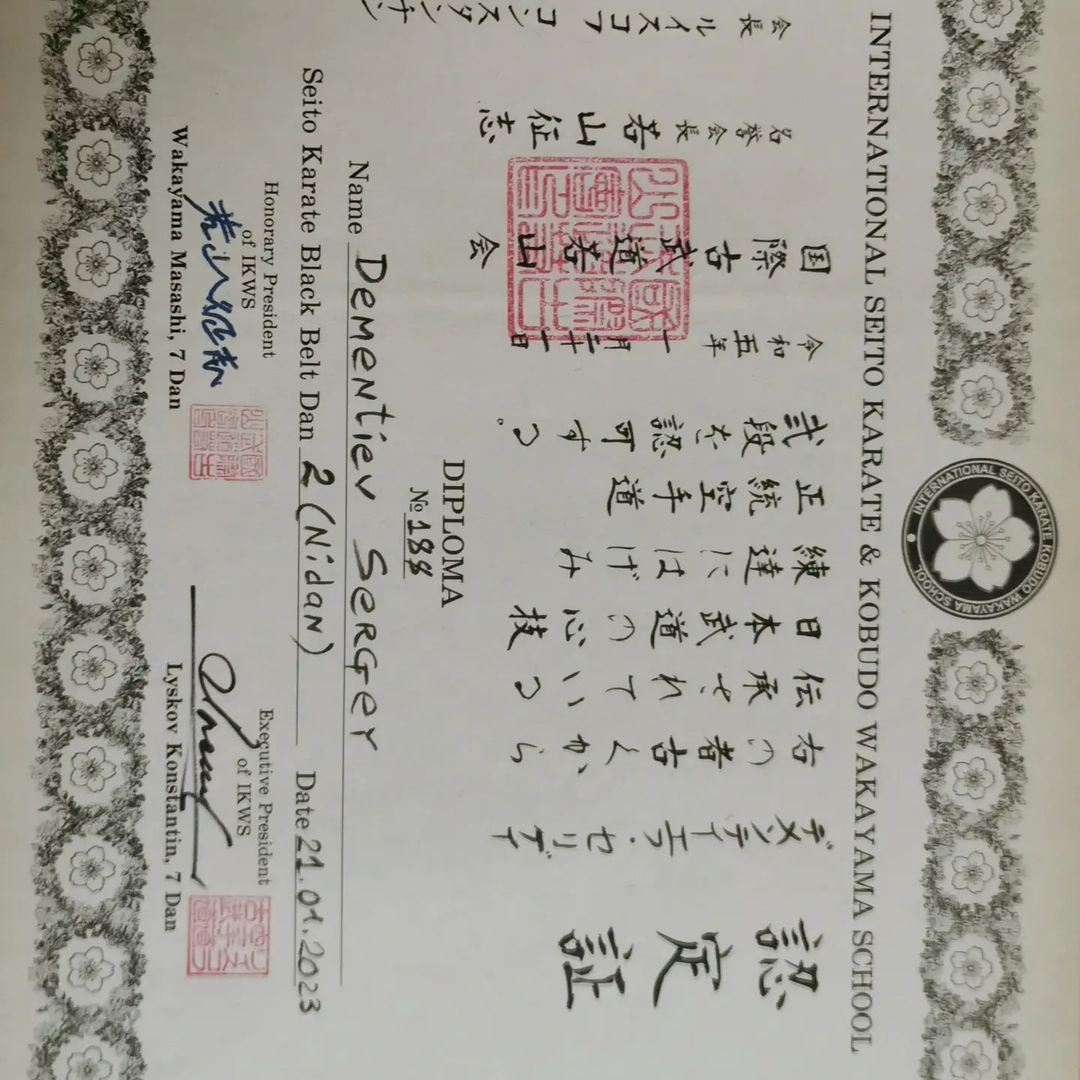 INTERNATIONAL SEITO KARATE KOBUDO WAKAYAMA SCHOOL
INTERNATIONAL SEITO KARATE & KOBUDO WAKAYAMA SCHOOL
認定証
デメンティエフ・セリゲイ
右の者古くから
伝承されている
日本武道の心技
練達にはげみ
正統空手道
弐段を認可する。
令和五年一月二十一日
国際古武道若山会
名誉会長 若山征志
会長 ルイスコフ コンスタンチン
DIPLOMA
№ 188
Name Dementiev Sergey
Seito Karate Black Belt Dan 2 (Nidan) Date 21.01.2023
Honorary President
of IKWS
Wakayama Masashi, 7 Dan
Executive President
of IKWS
Lyskov Konstantin, 7 Dan